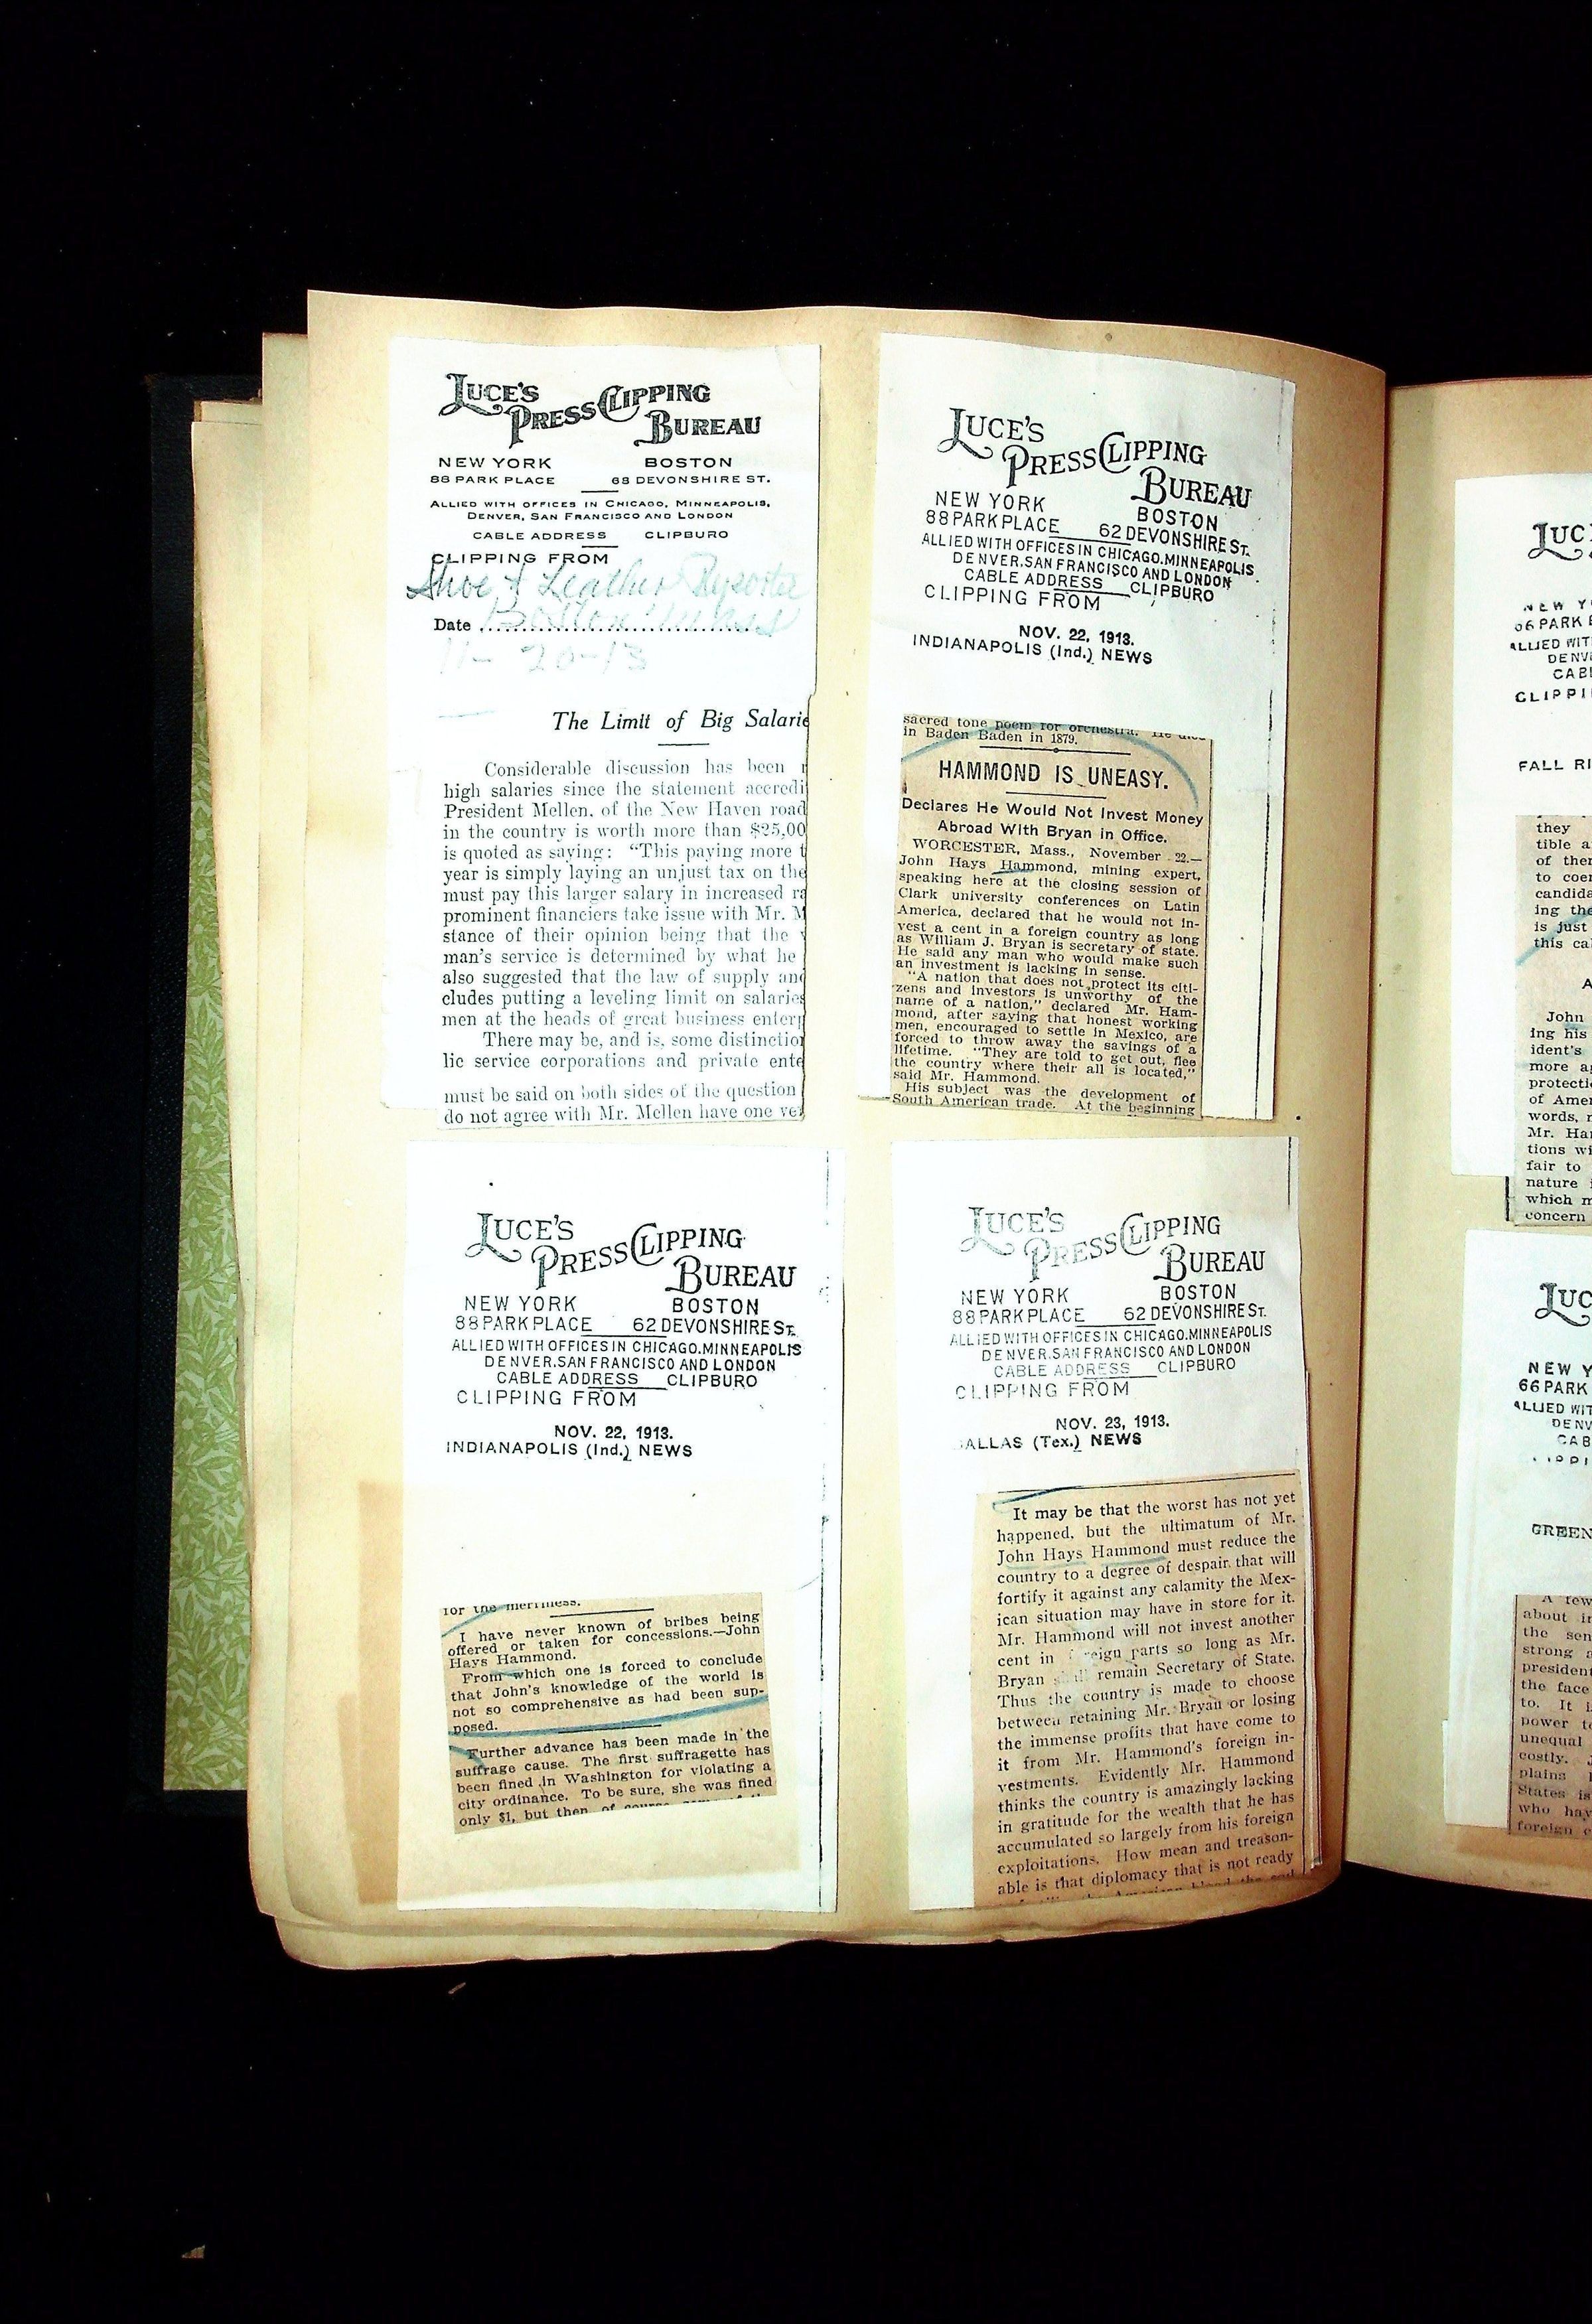 LUCE'S
PRESS CLIPPING
BUREAU
NEW YORK BOSTON
88 PARK PLACE 68 DEVONSHIRE ST.
ALLIED WITH OFFICES IN CHICAGO, MINNEAPOLIS,
DENVER, SAN FRANCISCO AND LONDON
CABLE ADDRESS CLIPBURO
CLIPPING FROM
Shoe & Leather Reporter
Date Boston Mass
11-20-13
The Limit of Big Salarie
Considerable discussion has been
high salaries since the statement accredi
President Mellen, of the New Haven road
in the country is worth more than $25,00
is quoted as saying: "This paying more t
year is simply laying an unjust tax on the
must pay this larger salary in increased ra
prominent financiers take issue with Mr. M
stance of their opinion being that the v
man's service is determined by what he
also suggested that the law of supply and
cludes putting a leveling limit on salaries
men at the heads of great business enterp
There may be, and is, some distinction
lic service corporations and private ente
must be said on both sides of the question
do not agree with Mr. Mellen have one ve
LUCE'S
PRESS CLIPPING
BUREAU
NEW YORK BOSTON
88 PARK PLACE 62 DEVONSHIRE ST.
ALLIED WITH OFFICES IN CHICAGO.MINNEAPOLIS.
DENVER.SAN FRANCISCO AND LONDON
CABLE ADDRESS CLIPBURO
CLIPPING FROM
NOV. 22, 1913.
INDIANAPOLIS (Ind.) NEWS
sacred tone poem for orchestra. He died
in Baden Baden in 1879.
HAMMOND IS UNEASY.
Declares He Would Not Invest Money
Abroad With Bryan in Office.
WORCESTER, Mass., November 22.—
John Hays Hammond, mining expert,
speaking here at the closing session of
Clark university conferences on Latin
America, declared that he would not in-
vest a cent in a foreign country as long
as William J. Bryan is secretary of state.
He said any man who would make such
an investment is lacking in sense.
"A nation that does not protect its citi-
zens and investors is unworthy of the
name of a nation," declared Mr. Ham-
mond, after saying that honest working
men, encouraged to settle in Mexico, are
forced to throw away the savings of a
lifetime. "They are told to get out, flee
the country where their all is located,"
said Mr. Hammond.
His subject was the development of
South American trade. At the beginning
LUCE'S
PRESS CLIPPING
BUREAU
NEW YORK BOSTON
88 PARK PLACE 62 DEVONSHIRE ST.
ALLIED WITH OFFICES IN CHICAGO.MINNEAPOLIS
DENVER.SAN FRANCISCO AND LONDON
CABLE ADDRESS CLIPBURO
CLIPPING FROM
NOV. 22, 1913.
INDIANAPOLIS (Ind.) NEWS
for the merriness.
I have never known of bribes being
offered or taken for concessions.—John
Hays Hammond.
From which one is forced to conclude
that John's knowledge of the world is
not so comprehensive as had been sup-
posed.
Further advance has been made in the
suffrage cause. The first suffragette has
been fined in Washington for violating a
city ordinance. To be sure, she was fined
only $1, but then, of course,
LUCE'S
PRESS CLIPPING
BUREAU
NEW YORK BOSTON
88 PARK PLACE 62 DEVONSHIRE ST.
ALLIED WITH OFFICES IN CHICAGO.MINNEAPOLIS
DENVER.SAN FRANCISCO AND LONDON
CABLE ADDRESS CLIPBURO
CLIPPING FROM
NOV. 23, 1913.
ALLAS (Tex.) NEWS
It may be that the worst has not yet
happened, but the ultimatum of Mr.
John Hays Hammond must reduce the
country to a degree of despair that will
fortify it against any calamity the Mex-
ican situation may have in store for it.
Mr. Hammond will not invest another
cent in eign parts so long as Mr.
Bryan remain Secretary of State.
Thus the country is made to choose
between retaining Mr. Bryan or losing
the immense profits that have come to
it from Mr. Hammond's foreign in-
vestments. Evidently Mr. Hammond
thinks the country is amazingly lacking
in gratitude for the wealth that he has
accumulated so largely from his foreign
exploitations. How mean and treason-
able is that diplomacy that is not ready
American blood the soil
LUC
NEW Y
66 PARK
ALLIED WIT
DENV
CABL
CLIPPI
FALL RI
they
tible a
of ther
to coer
candida
ing the
is just
this ca
A
John
ing his
ident's
more a
protecti
of Amer
words, r
Mr. Har
tions wi
fair to
nature
which m
concern
LUC
NEW Y
66 PARK
ALLIED WIT
DENV
CAB
GREEN
A few
about in
the sen
strong a
president
the face
to. It i
power to
unequal
costly. J
plains
States is
who hav
foreign c